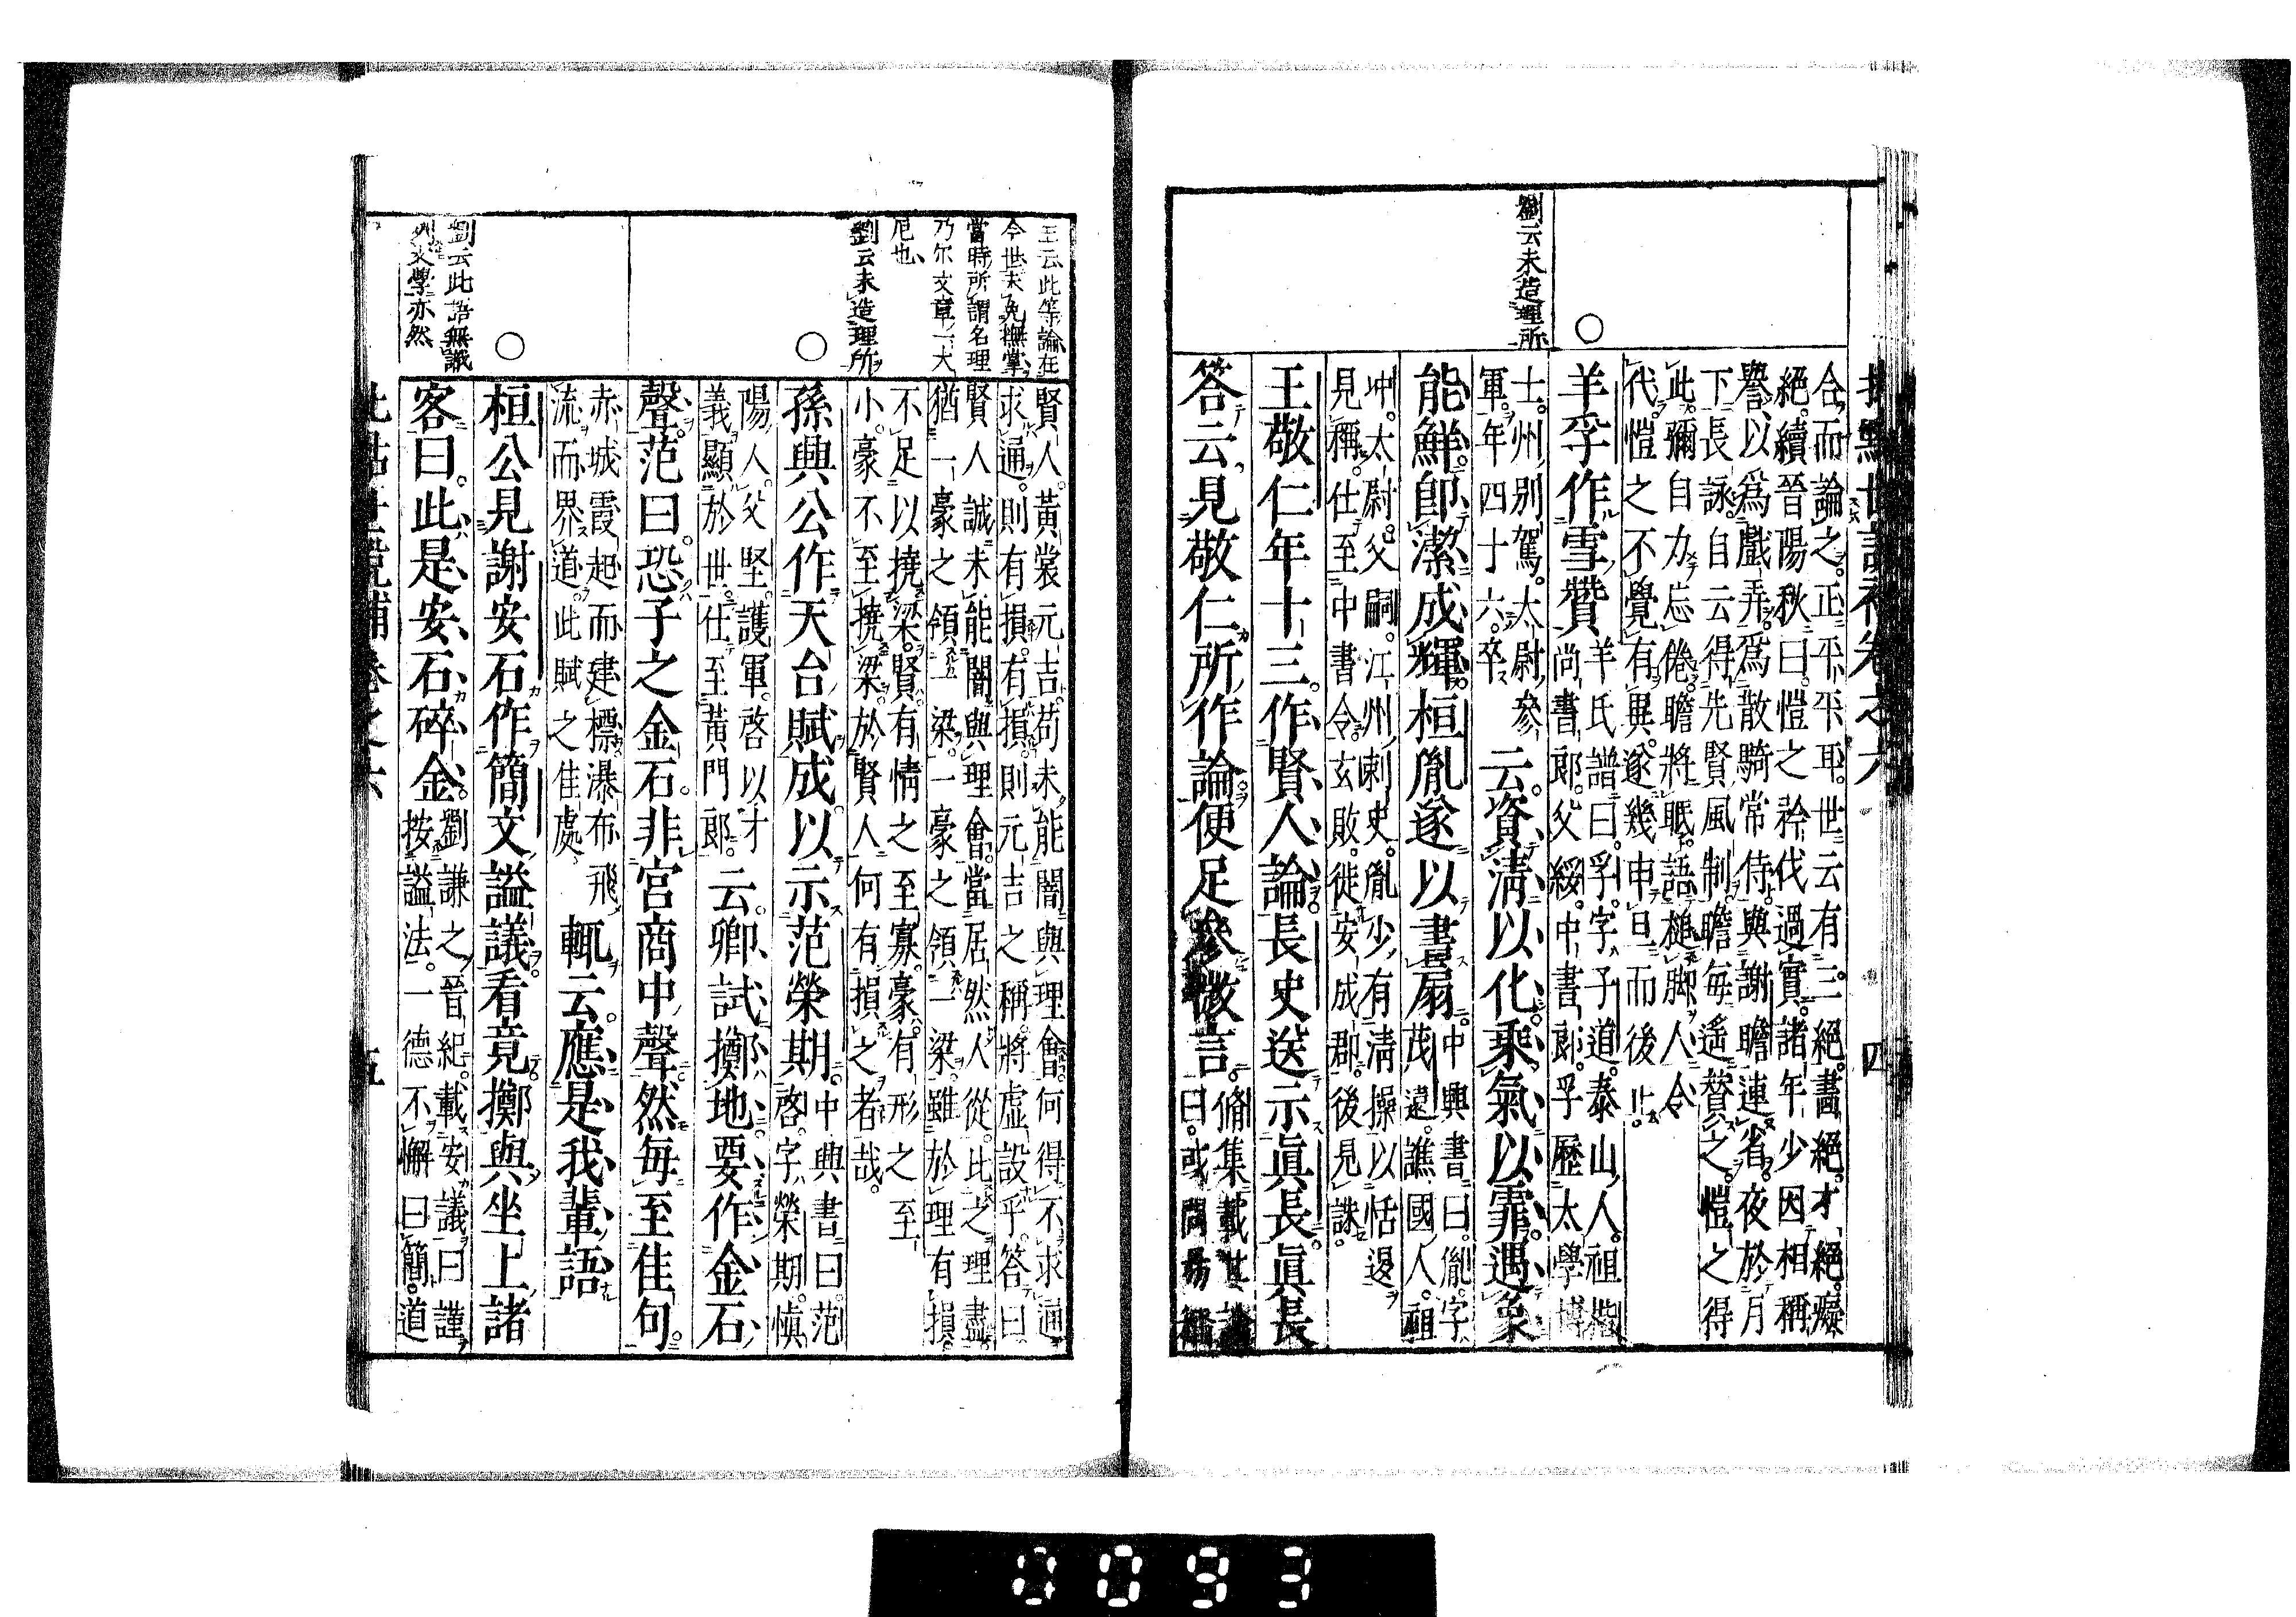 批點世説補卷之六 四
合而論之正平平耳世云有三絕畫絕才絕癡
絕續晉陽秋曰愷之矜伐過實諸年少因相稱
譽以爲戲弄爲散騎常侍與謝瞻連省夜於月
下長詠自云得先賢風制瞻每遥贊之愷之得
此彌自力忘倦瞻將眠語槌脚人令
代愷之不覺有異遂幾申旦而後止
羊孚作雪贊
羊氏譜曰孚字子道泰山人祖楷
尚書郎父綏中書郎孚歷太學博
士州別駕太尉參
軍年四十六卒
云資淸以化乗氣以霏遇象
能鮮卽潔成輝桓胤遂以書扇
中興書曰胤字
茂遠譙國人祖
沖太尉父嗣江州刺史胤少有淸操以恬退
見稱仕至中書令玄敗徙安成郡後見誅
王敬仁年十三作賢人論長史送示眞長眞長
答云見敬仁所作論便足參微言
脩集載其論
曰或問易稱
劉云未造理所
賢人黃裳元吉苟未能闇與理會何得不求通
求通則有損有損則元吉之稱將虚設乎答曰
賢人誠未能闇與理會當居然人從此之理盡
猶一豪之領一梁一豪之領一梁雖於理有損
不足以撓梁賢有情之至寡豪有形之至
小豪不至撓梁於賢人何有損之者哉
孫興公作天台賦成以示范榮期
中興書曰范
啓字榮期愼
陽人父堅護軍啓以才
義顯於世仕至黃門郎
云卿試擲地要作金石
聲范曰恐子之金石非宮商中聲然每至佳句
赤城霞起而建標瀑布飛
流而界道此賦之佳處
輒云應是我輩語
桓公見謝安石作簡文謚議看竟擲與坐上諸
客曰此是安石碎金
劉謙之晉紀載安議曰謹
按謚法一德不懈曰簡道
批點世説補卷之六 五
王云此等論在
今世未免撫掌
當時所謂名理
乃尓文章一大
厄也
劉云未造理所
劉云此語無識
列文學亦然
0093